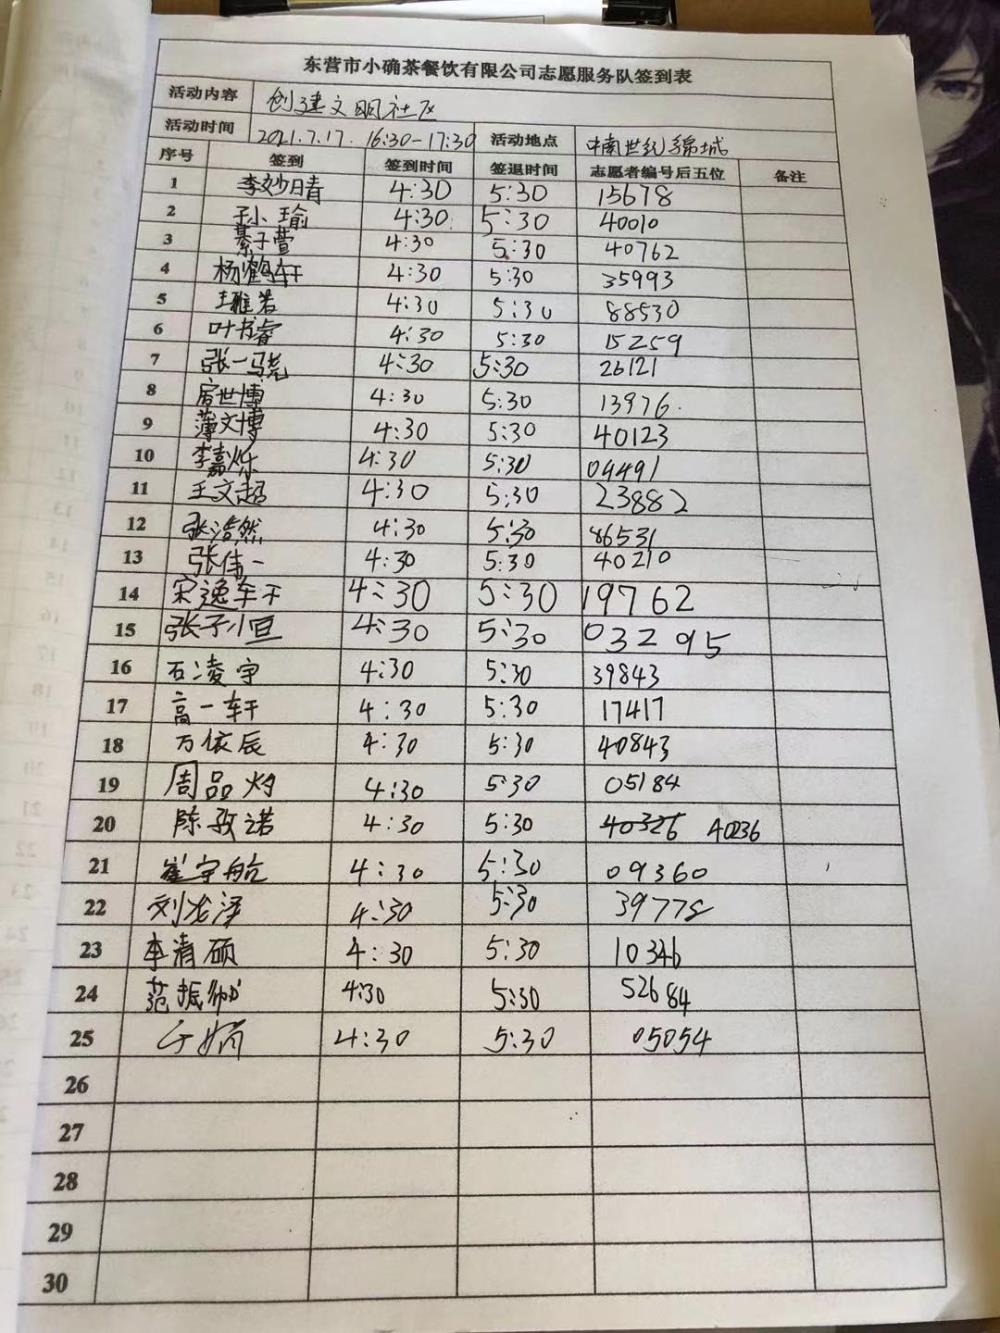 东营市小确茶餐饮有限公司志愿服务队签到表
活动内容 创建文明社区
活动时间 2021.7.17. 16:30-17:30 活动地点 中南世纪锦城
序号 签到 签到时间 签退时间 志愿者编号后五位 备注
1 李妙晴 4:30 5:30 15678
2 孙小瑜 4:30 5:30 40010
3 綦子萱 4:30 5:30 40762
4 杨鹤轩 4:30 5:30 35993
5 4:30 5:30 88530
6 叶书睿 4:30 5:30 15259
7 张一骁 4:30 5:30 26121
8 房世博 4:30 5:30 13976.
9 薄文博 4:30 5:30 40123
10 李嘉烁 4:30 5:30 04491
11 王文超 4:30 5:30 23882
12 张浩然 4:30 5:30 86531
13 张伟一 4:30 5:30 40210
14 宋逸轩 4:30 5:30 19762
15 张子恒 4:30 5:30 03295
16 石凌宇 4:30 5:30 39843
17 高一轩 4:30 5:30 17417
18 万依辰 4:30 5:30 40843
19 周品灼 4:30 5:30 05184
20 陈孜诺 4:30 5:30 40326 40236
21 崔宇航 4:30 5:30 09360
22 刘龙泽 4:30 5:30 39778
23 李清硕 4:30 5:30 10346
24 范振 4:30 5:30 52684
25 于娟 4:30 5:30 05054
26
27
28
29
30